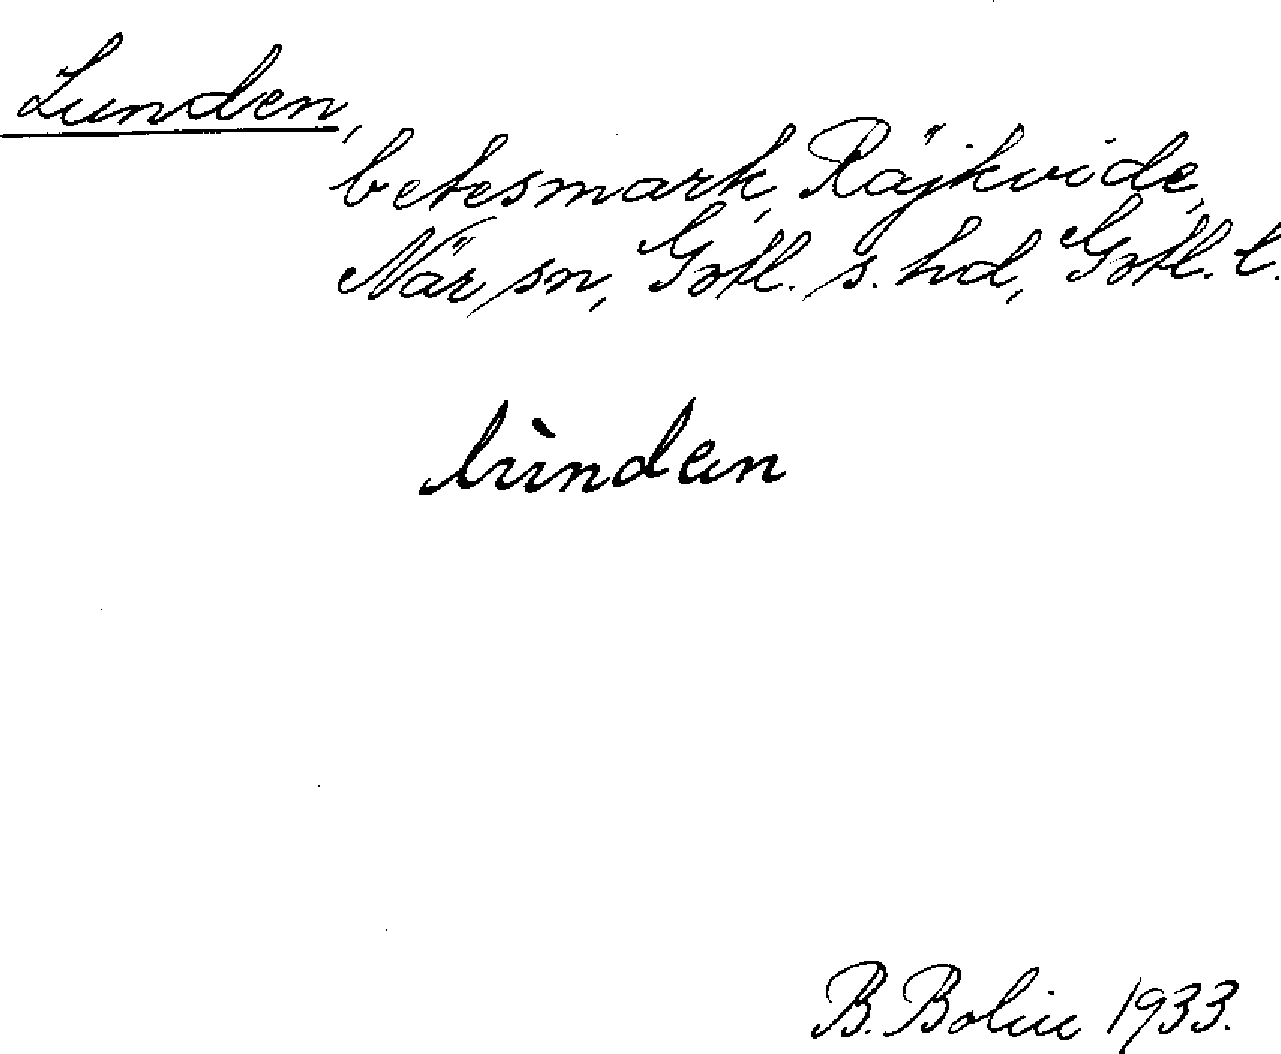 Lunden,
betesmark, Räjkvide,
När sn, Gotl. s. hd, Gotl. l.
lùnden
B. Bolin 1933.